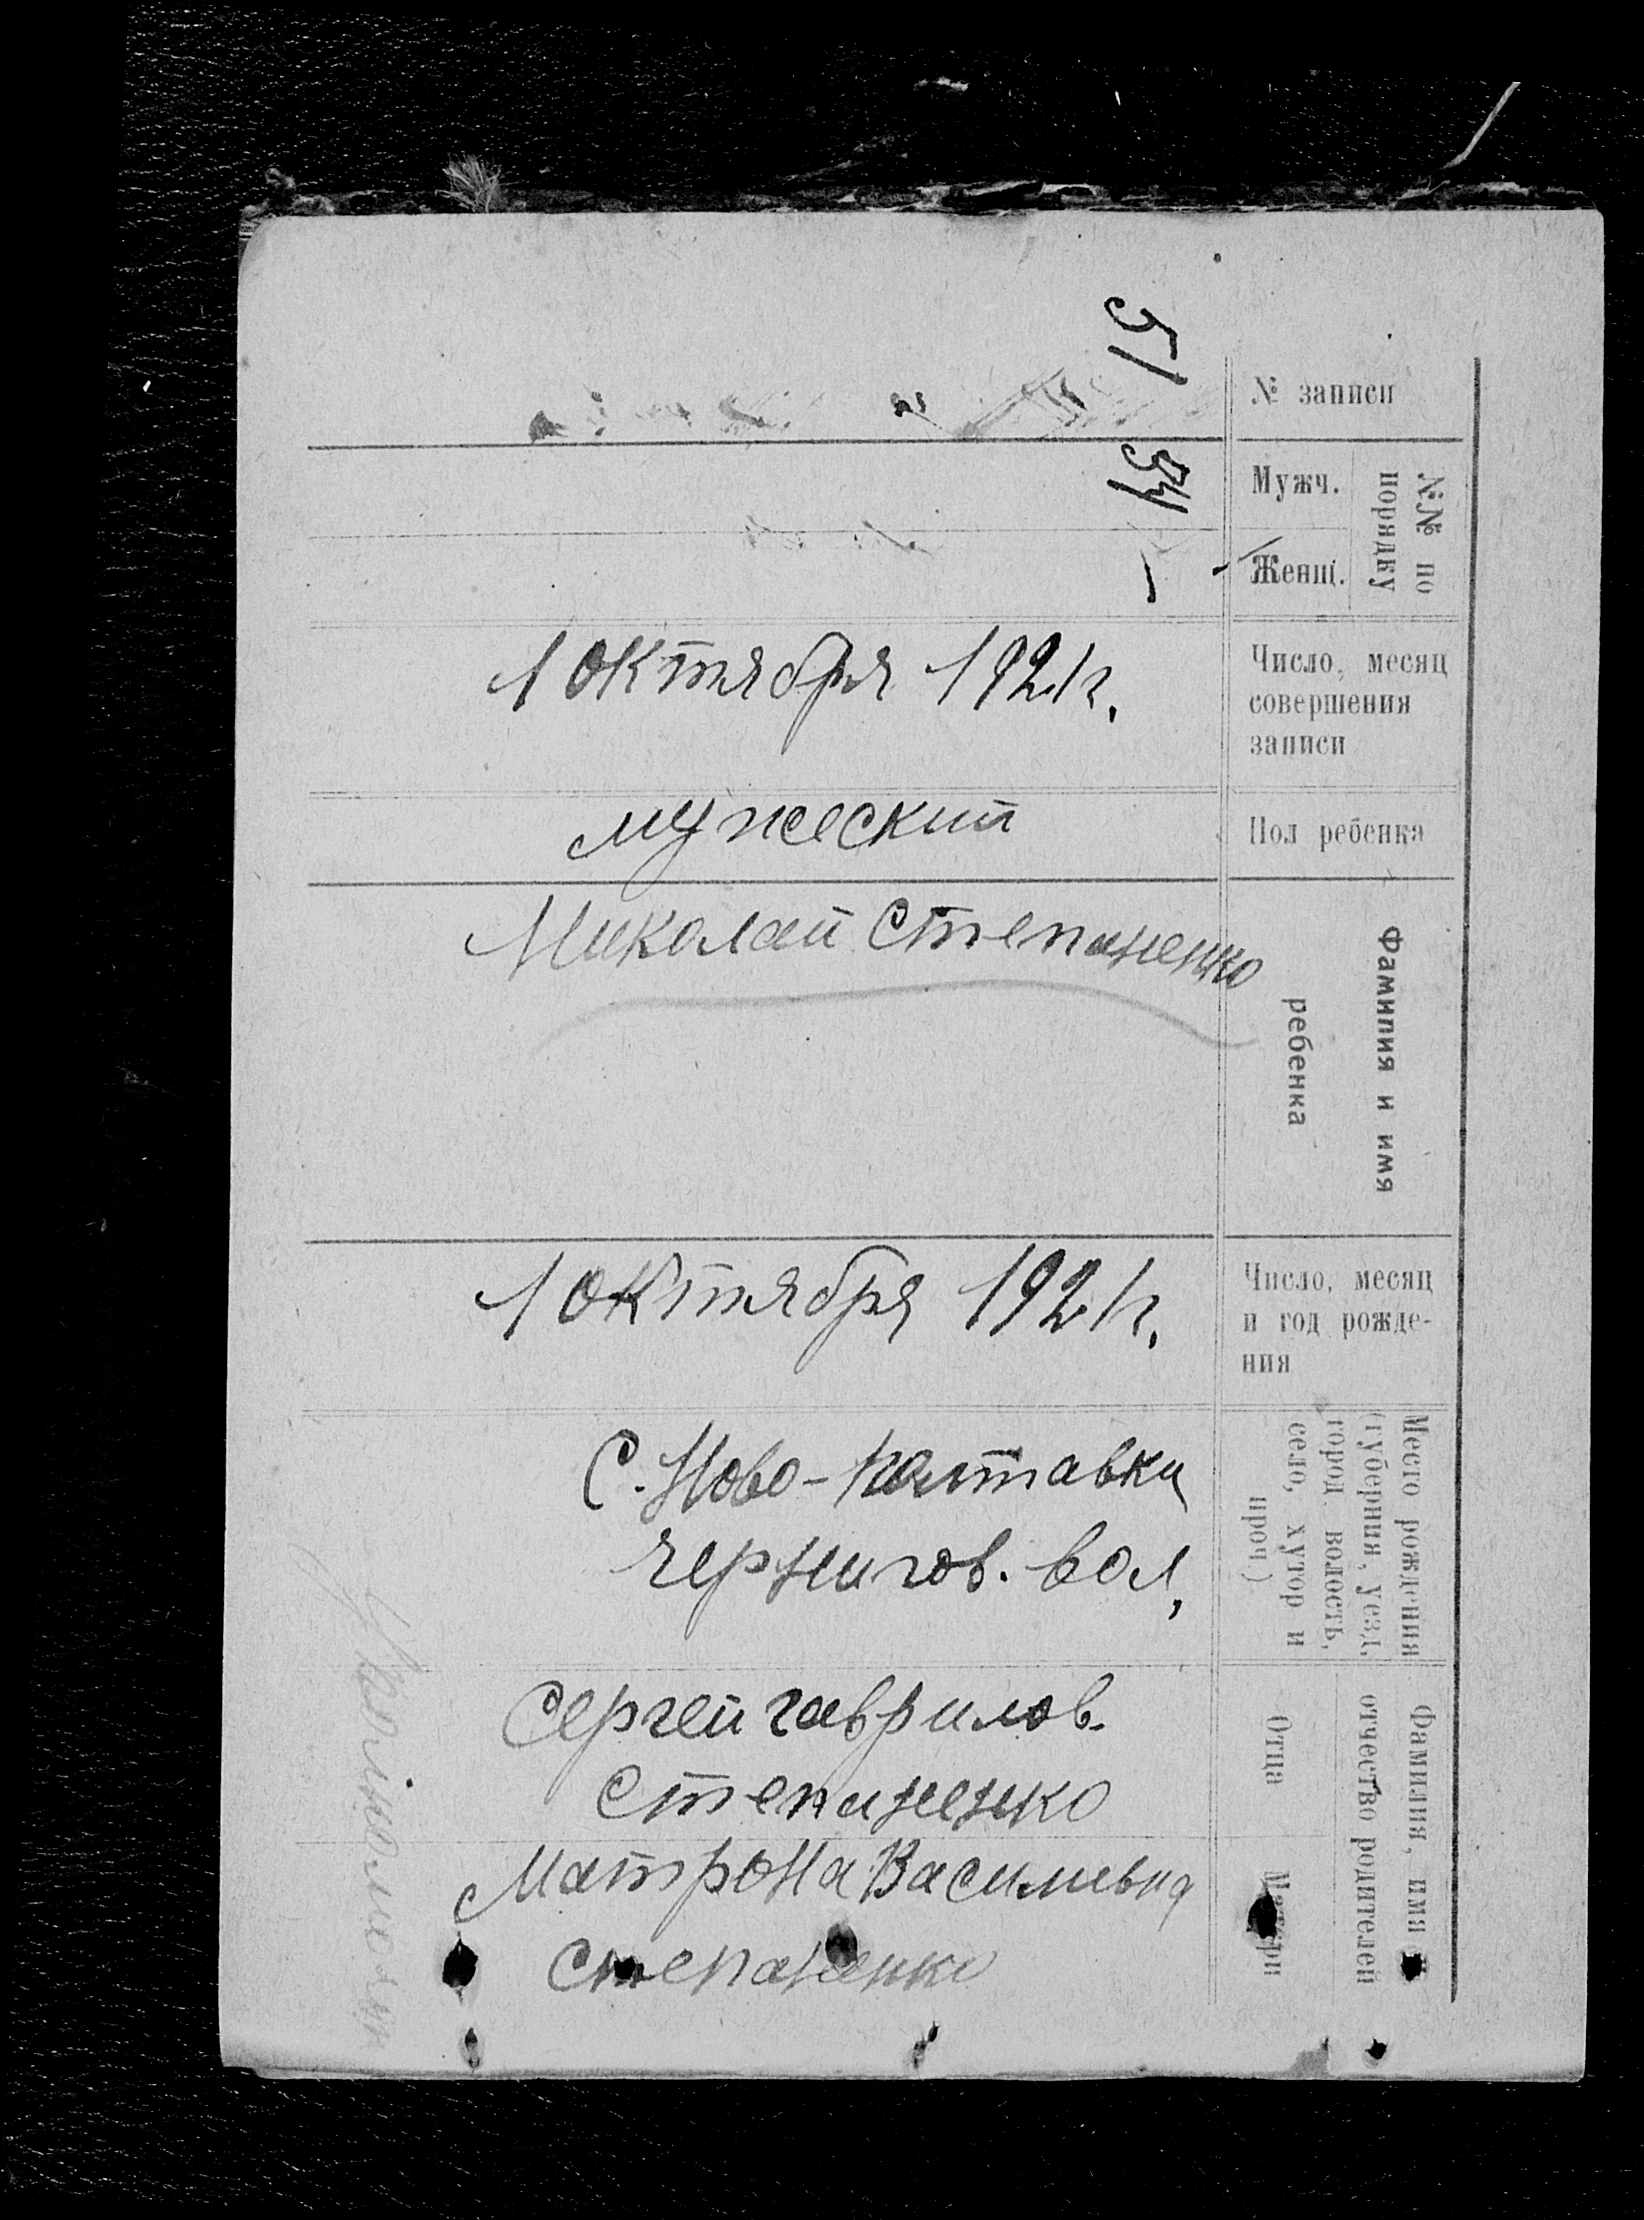 № записи
51
№№ по
порядку
Мужч.
54
Женщ.
—
Число, месяц
совершения
записи
1 октября 1921г.
Пол ребенка
мужеский
Фамилия и имя
ребенка
Николай Степаненко
Число, месяц
и год рожде-
ния
1 октября 1921г.
Место рождения
(губерния, уезд,
город. волость,
село, хутор и
проч.)
С. Ново-Полтавки
Чернигов. вол,
Фамилия, имя и
отчество родителей
Отца
Сергей Гаврилов.
Степаненко
Матери
Матрона Василиевна
Степаненко